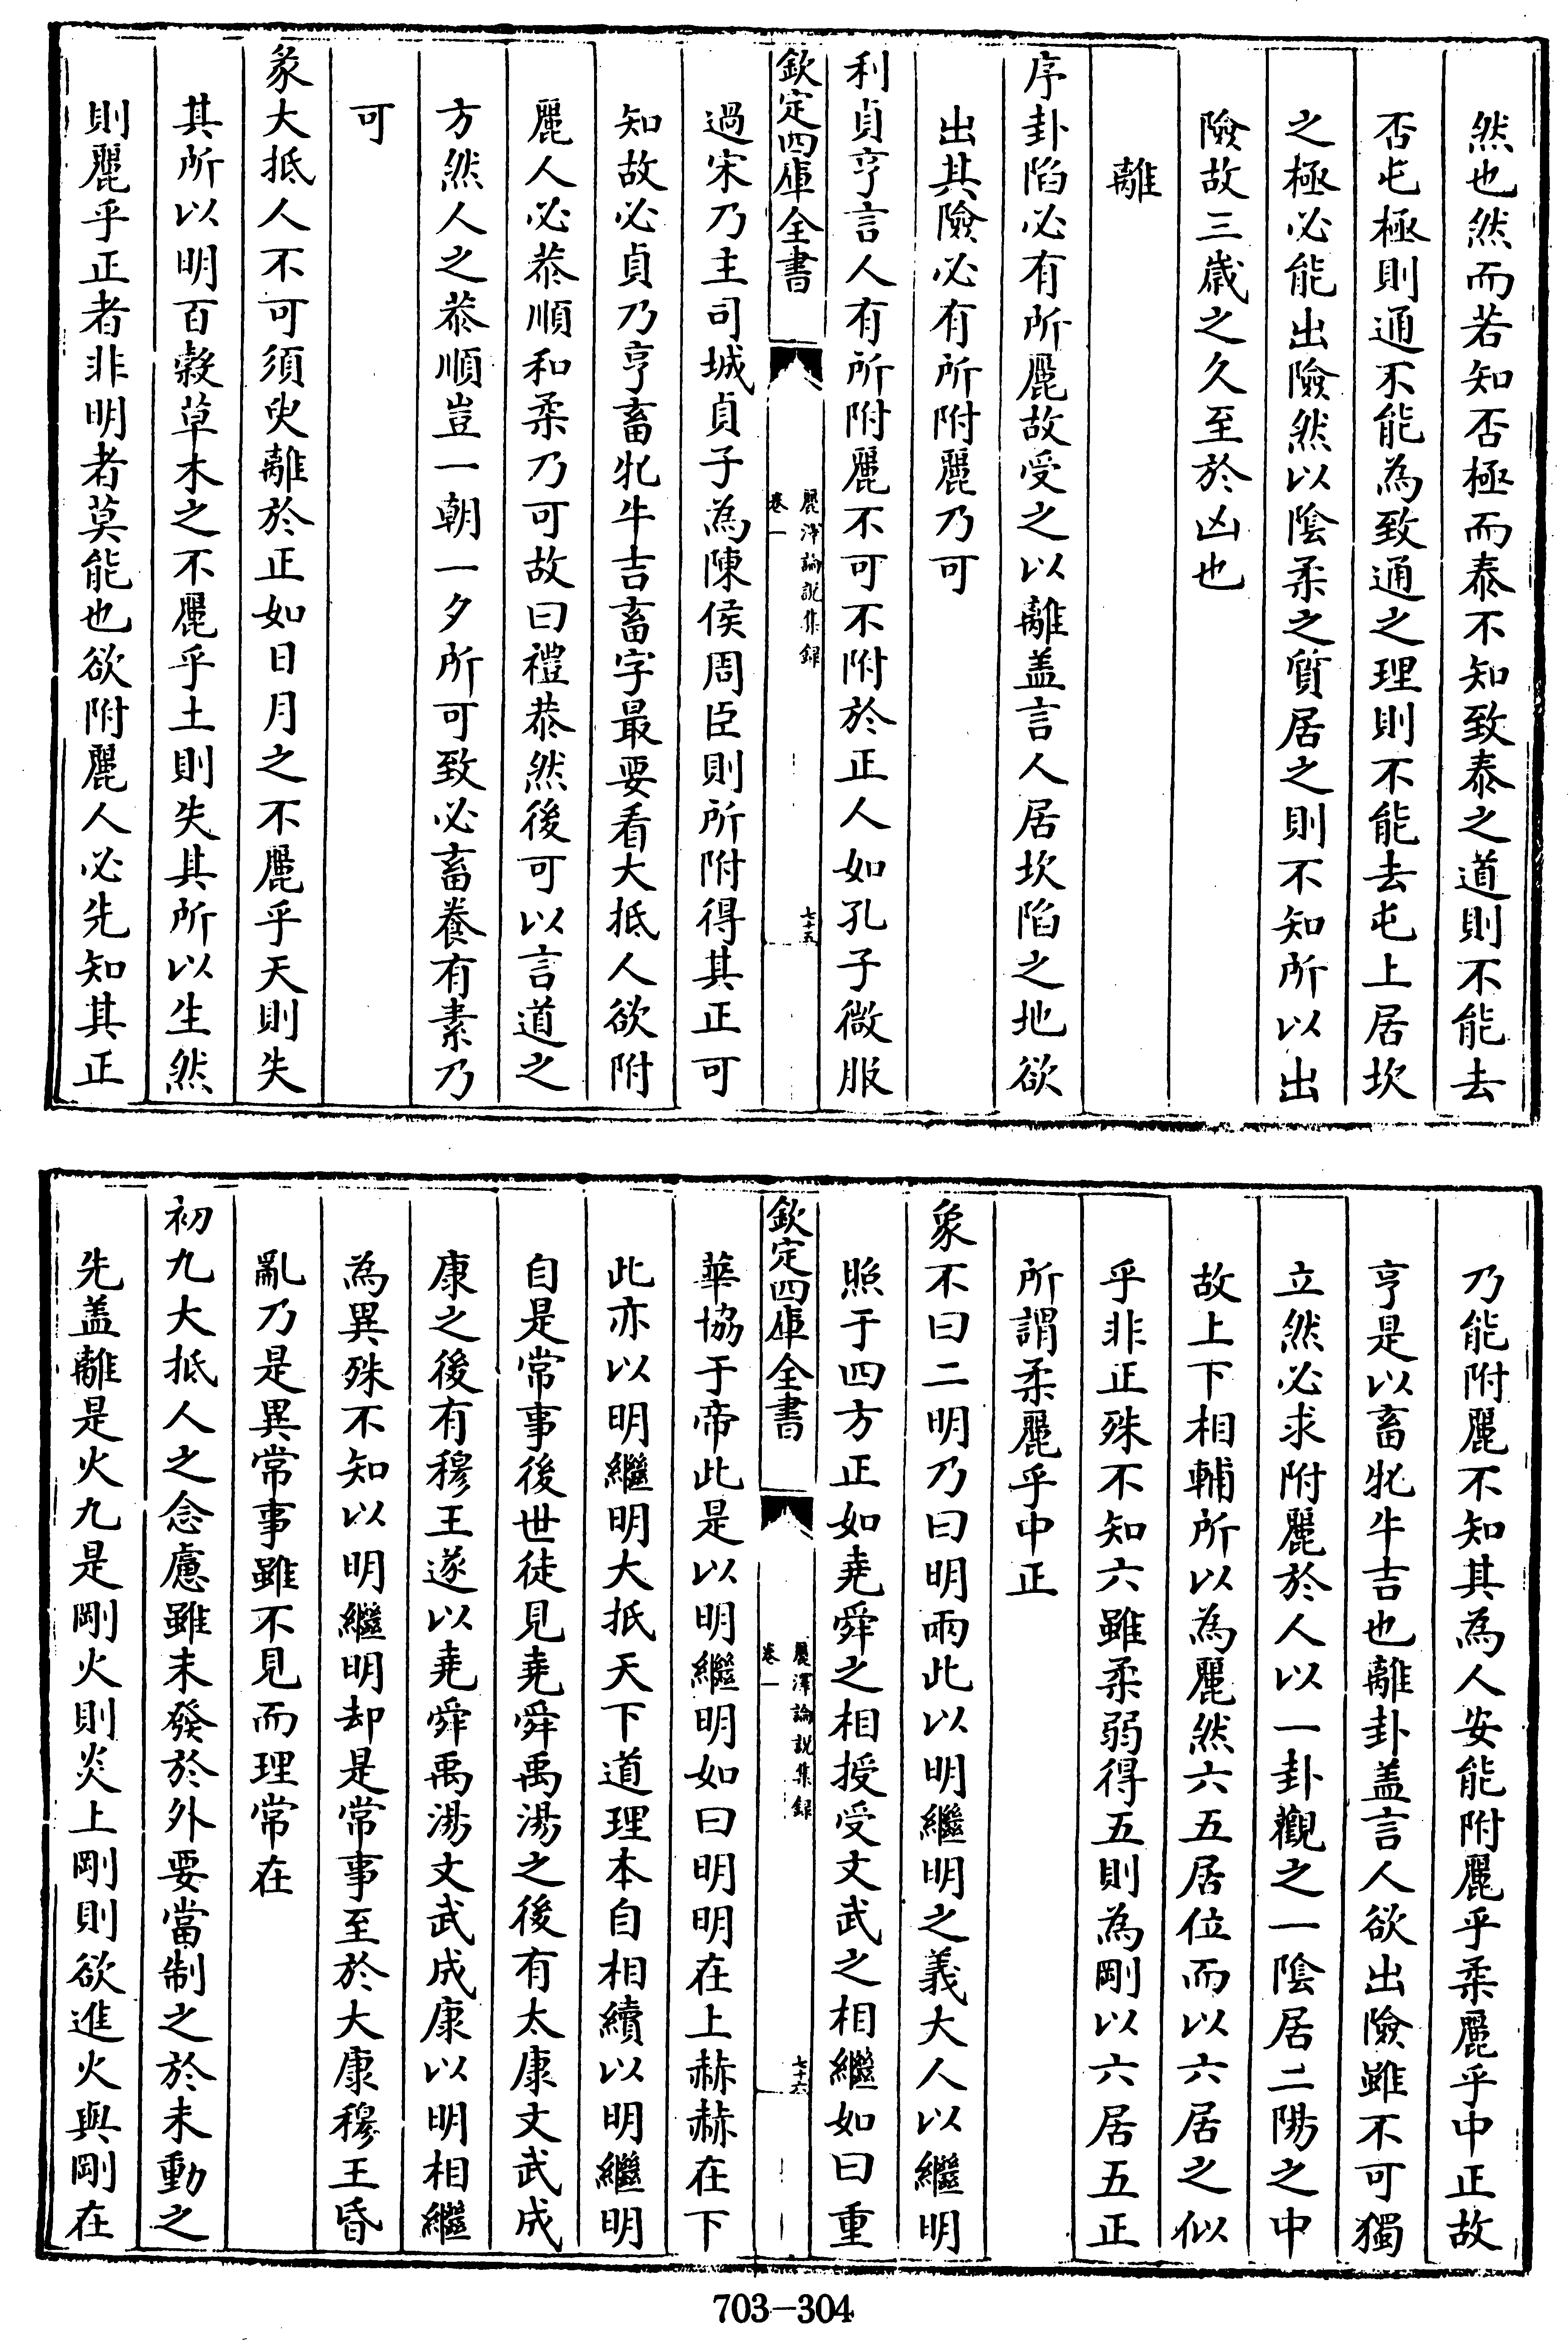 然也然而若知否極而泰不知致泰之道則不能去
否屯極則通不能為致通之理則不能去屯上居坎
之極必能出險然以陰柔之質居之則不知所以出
險故三歲之久至於凶也
離
序卦陷必有所麗故受之以離盖言人居坎陷之地欲
出其險必有所附麗乃可
利貞亨言人有所附麗不可不附於正人如孔子微服
欽定四庫全書
麗澤論說集録
卷一
七十五
過宋乃主司城貞子為陳侯周臣則所附得其正可
知故必貞乃亨畜牝牛吉畜字最要看大抵人欲附
麗人必恭順和柔乃可故曰禮恭然後可以言道之
方然人之恭順豈一朝一夕所可致必畜養有素乃
可
彖大抵人不可須臾離於正如日月之不麗乎天則失
其所以明百穀草木之不麗乎土則失其所以生然
則麗乎正者非明者莫能也欲附麗人必先知其正
乃能附麗不知其為人安能附麗乎柔麗乎中正故
亨是以畜牝牛吉也離卦盖言人欲出險雖不可獨
立然必求附麗於人以一卦觀之一陰居二陽之中
故上下相輔所以為麗然六五居位而以六居之似
乎非正殊不知六雖柔弱得五則為剛以六居五正
所謂柔麗乎中正
象不曰二明乃曰明兩此以明繼明之義大人以繼明
照于四方正如堯舜之相授受文武之相繼如曰重
欽定四庫全書
麗澤論說集録
卷一
七十六
華協于帝此是以明繼明如曰明明在上赫赫在下
此亦以明繼明大抵天下道理本自相續以明繼明
自是常事後世徒見堯舜禹湯之後有太康文武成
康之後有穆王遂以堯舜禹湯文武成康以明相繼
為異殊不知以明繼明却是常事至於大康穆王昏
亂乃是異常事雖不見而理常在
初九大抵人之念慮雖未發於外要當制之於未動之
先盖離是火九是剛火則炎上剛則欲進火與剛在
703-304